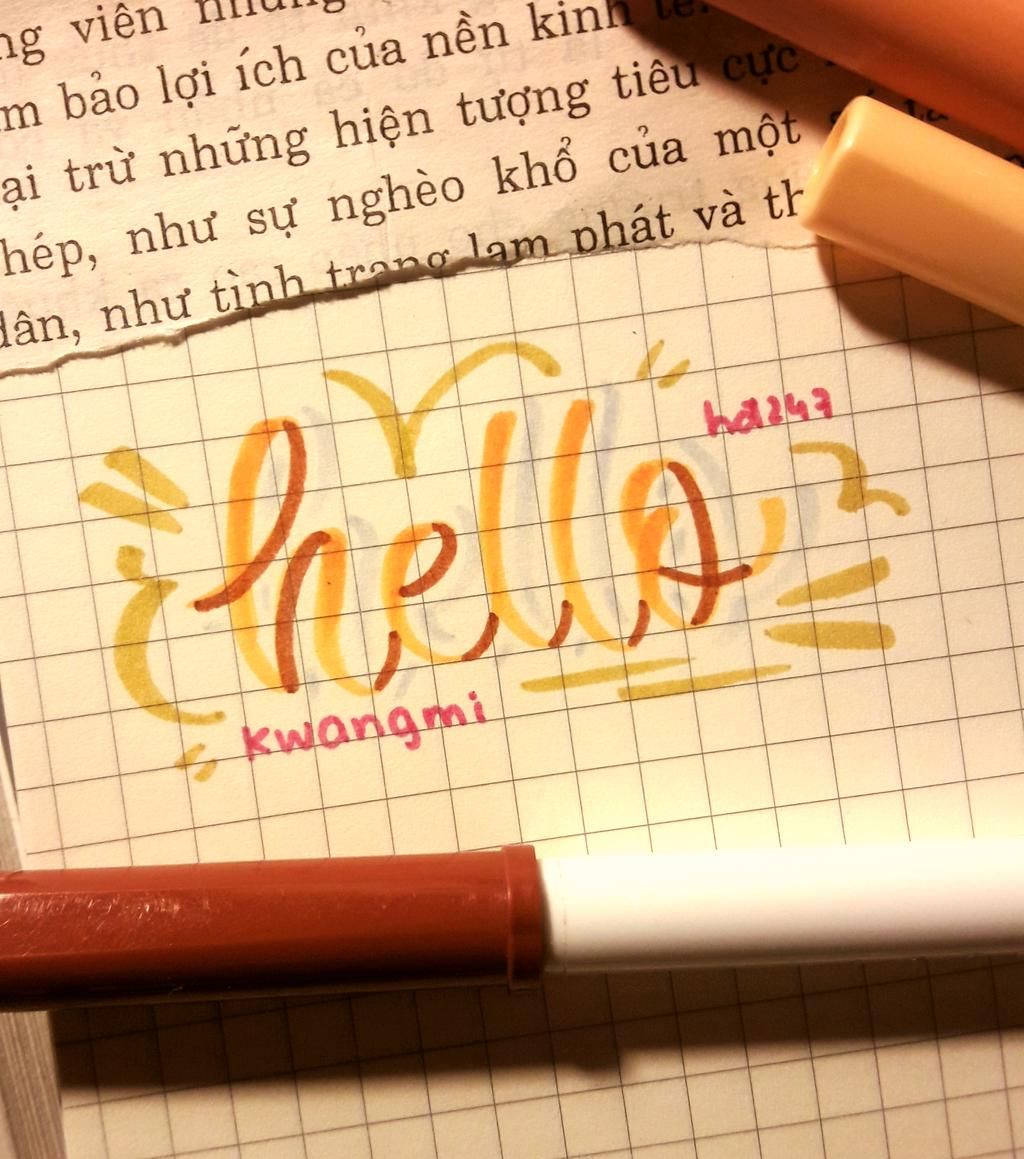 viên những
m bảo lợi ích của nền kinh tế.
ại trừ những hiện tượng tiêu cực
hép, như sự nghèo khổ của một số
dân, như tình trạng lạm phát và th
hello
hd247
kwangmi